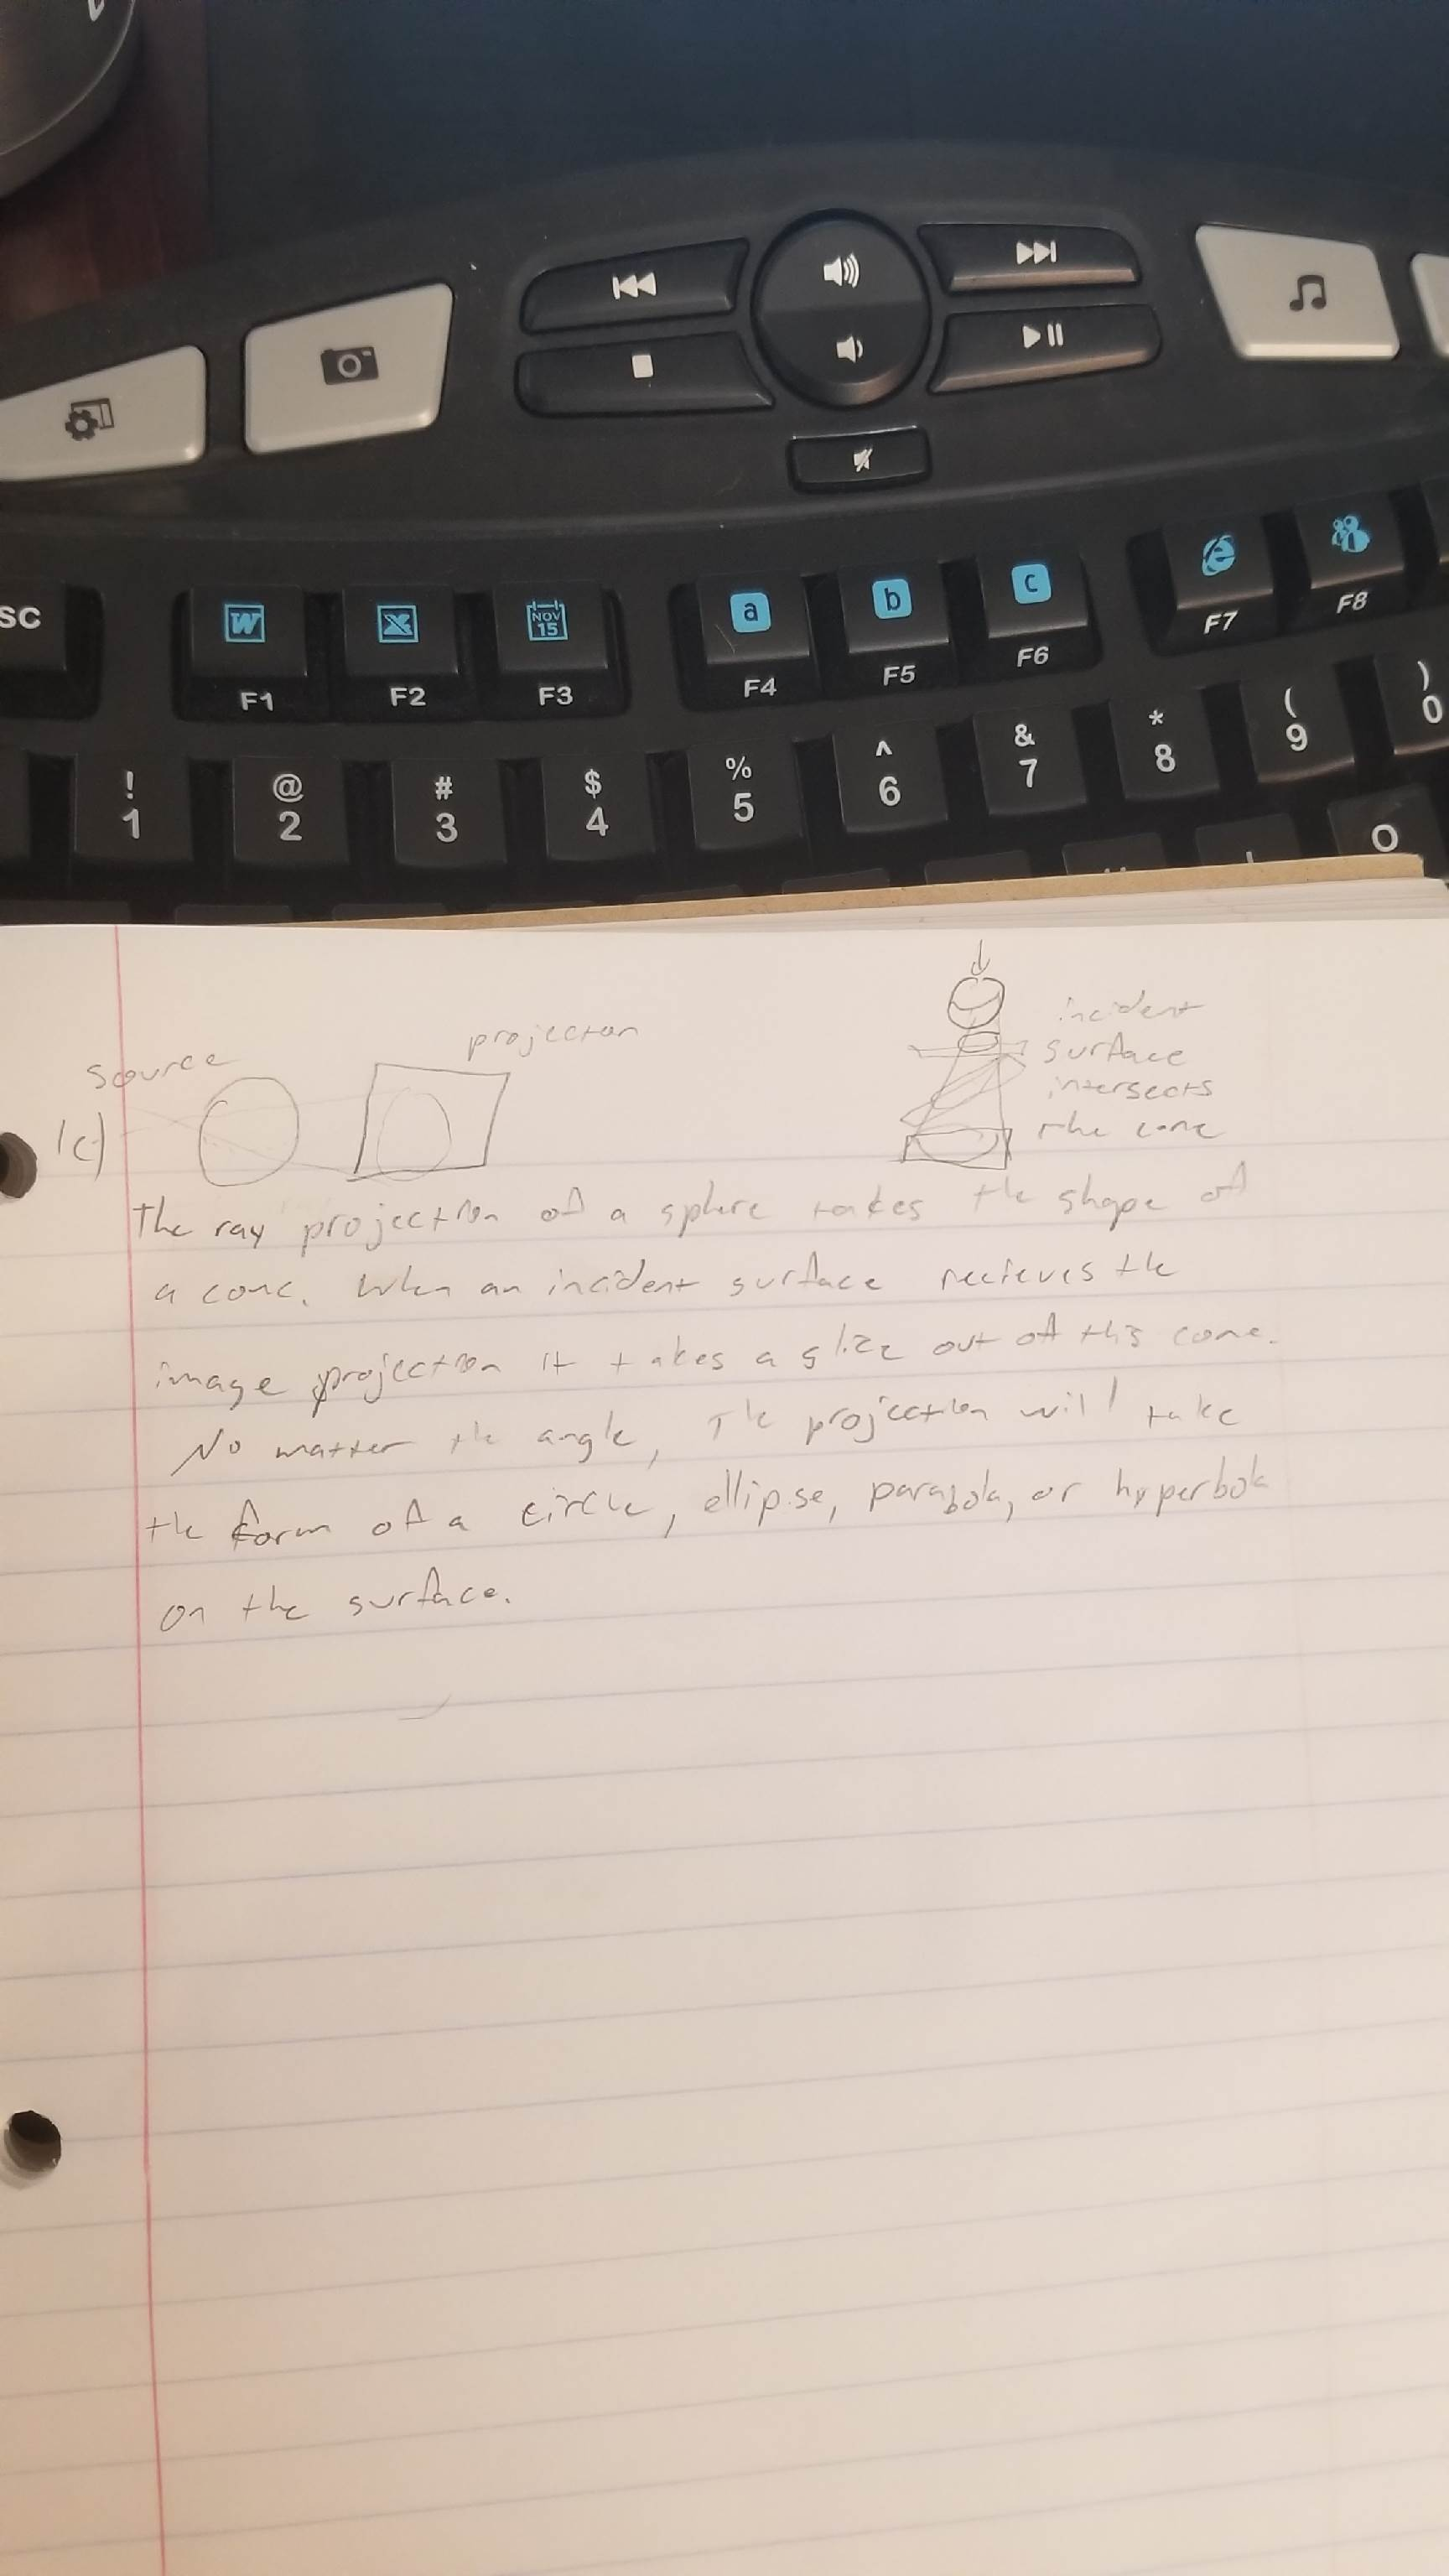 SC
W
F1
X
F2
NOV
15
F3
a
F4
b
F5
c
F6
e
F7
F8
!
1
@
2
#
3
$
4
%
5
^
6
&
7
*
8
(
9
)
0
O
source
projection
1c)
incident
surface
intersects
the cone
The ray projection of a sphere takes the shape of
a cone. When an incident surface recieves the
image projection it takes a slice out of this cone.
No matter the angle, The projection will take
the form of a circle, ellipse, parabola, or hyperbola
on the surface.